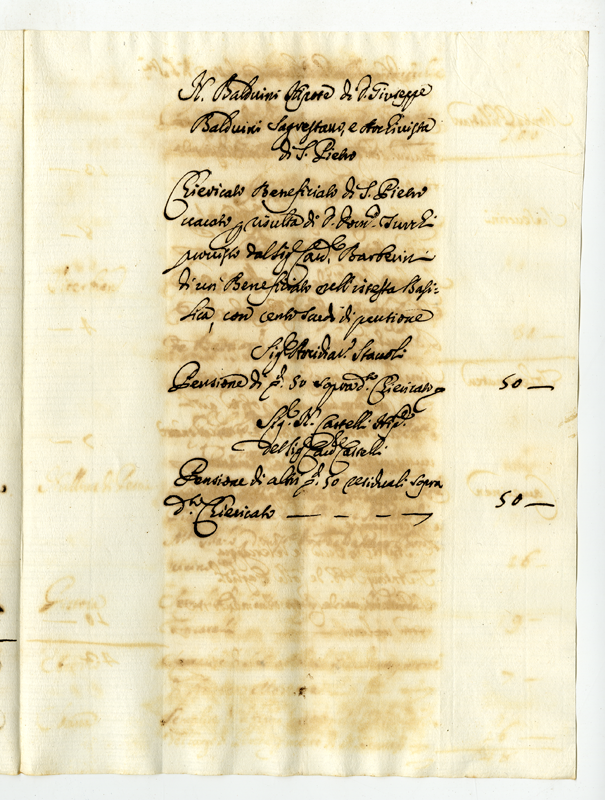 N. Balduini Nipote di D. Giuseppe
Balduini Sagrestano, e Archivista
di S. Pietro
Chiericato Beneficiato di S. Pietro
vacato p. risulta di D. Dom.co Turchi
provisto dal Sig.r Card.l Barberini
di un Beneficiato nell'istessa Basi=
lica, con cento scudi di pensione
Sig.r Stanoli
Pensione di p.i 50 soprad.o Chiericato 50 —
Sig.r N. Castelli Nip.e
del Sig.r Card.l Castelli
Pensione di altri p.i 50 residuali sopra
d.o Chiericato — — — — 50 —